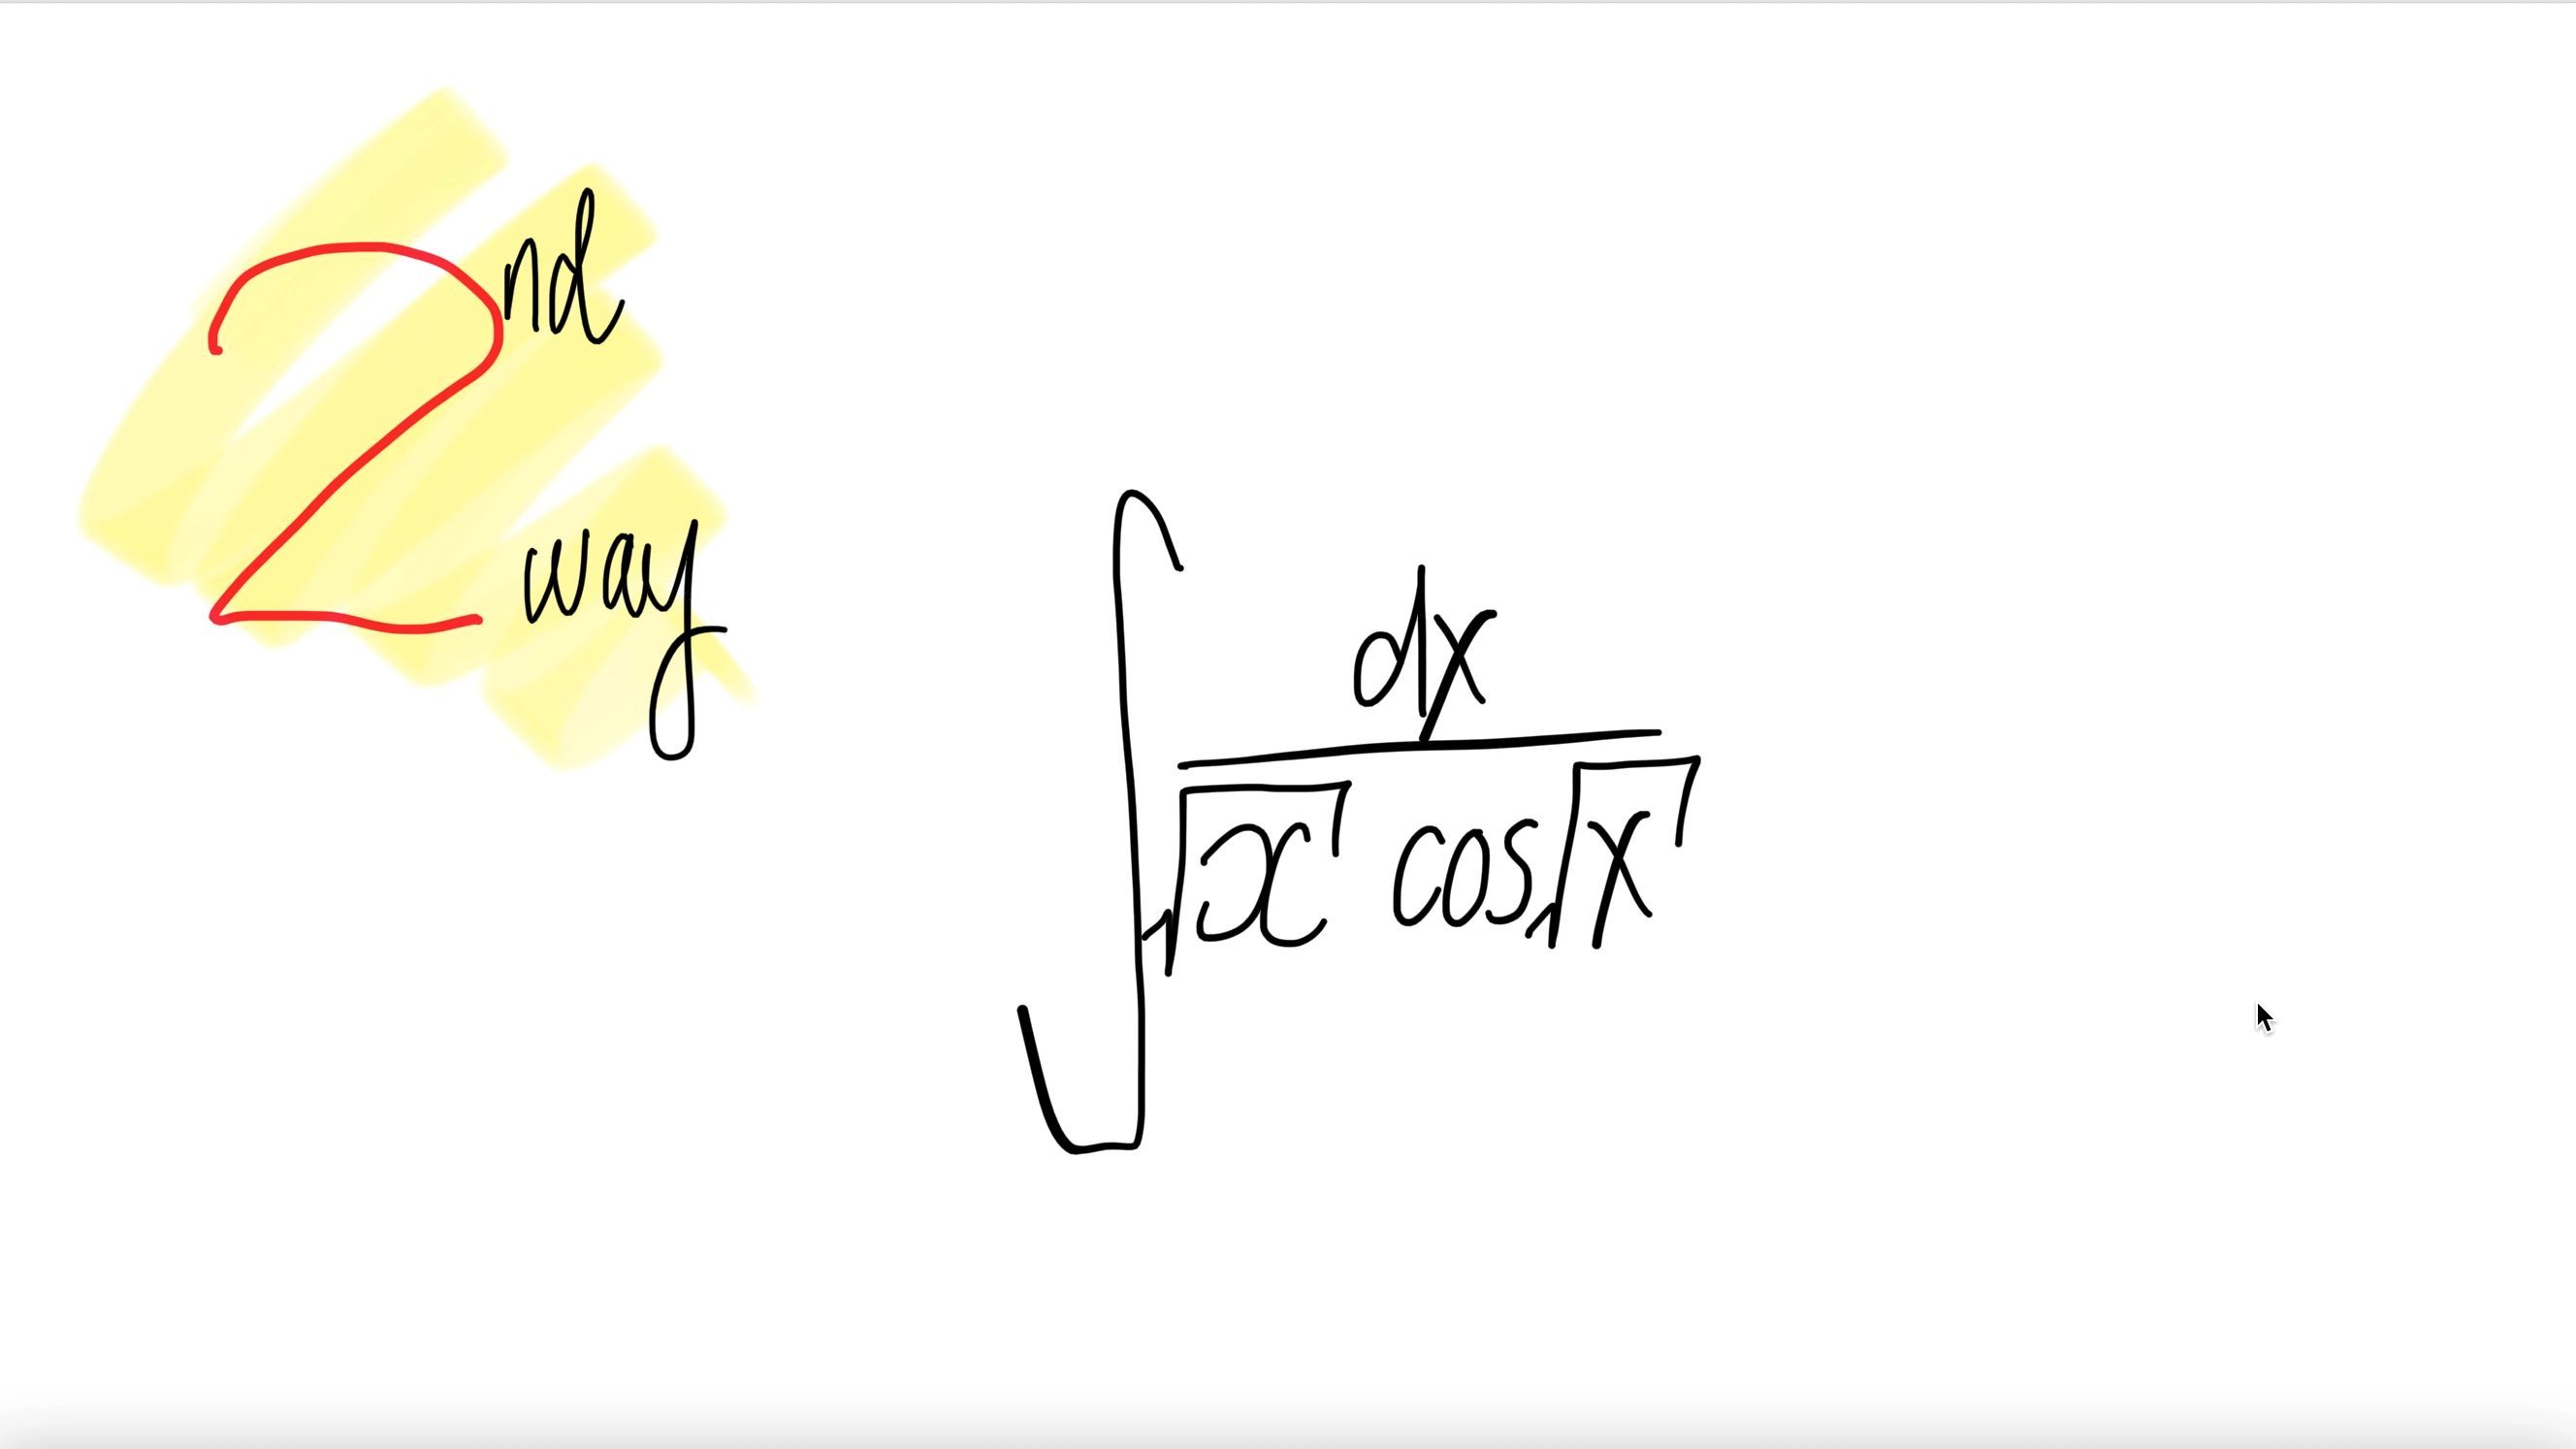 2nd
way
∫ dx / (√x cos √x)